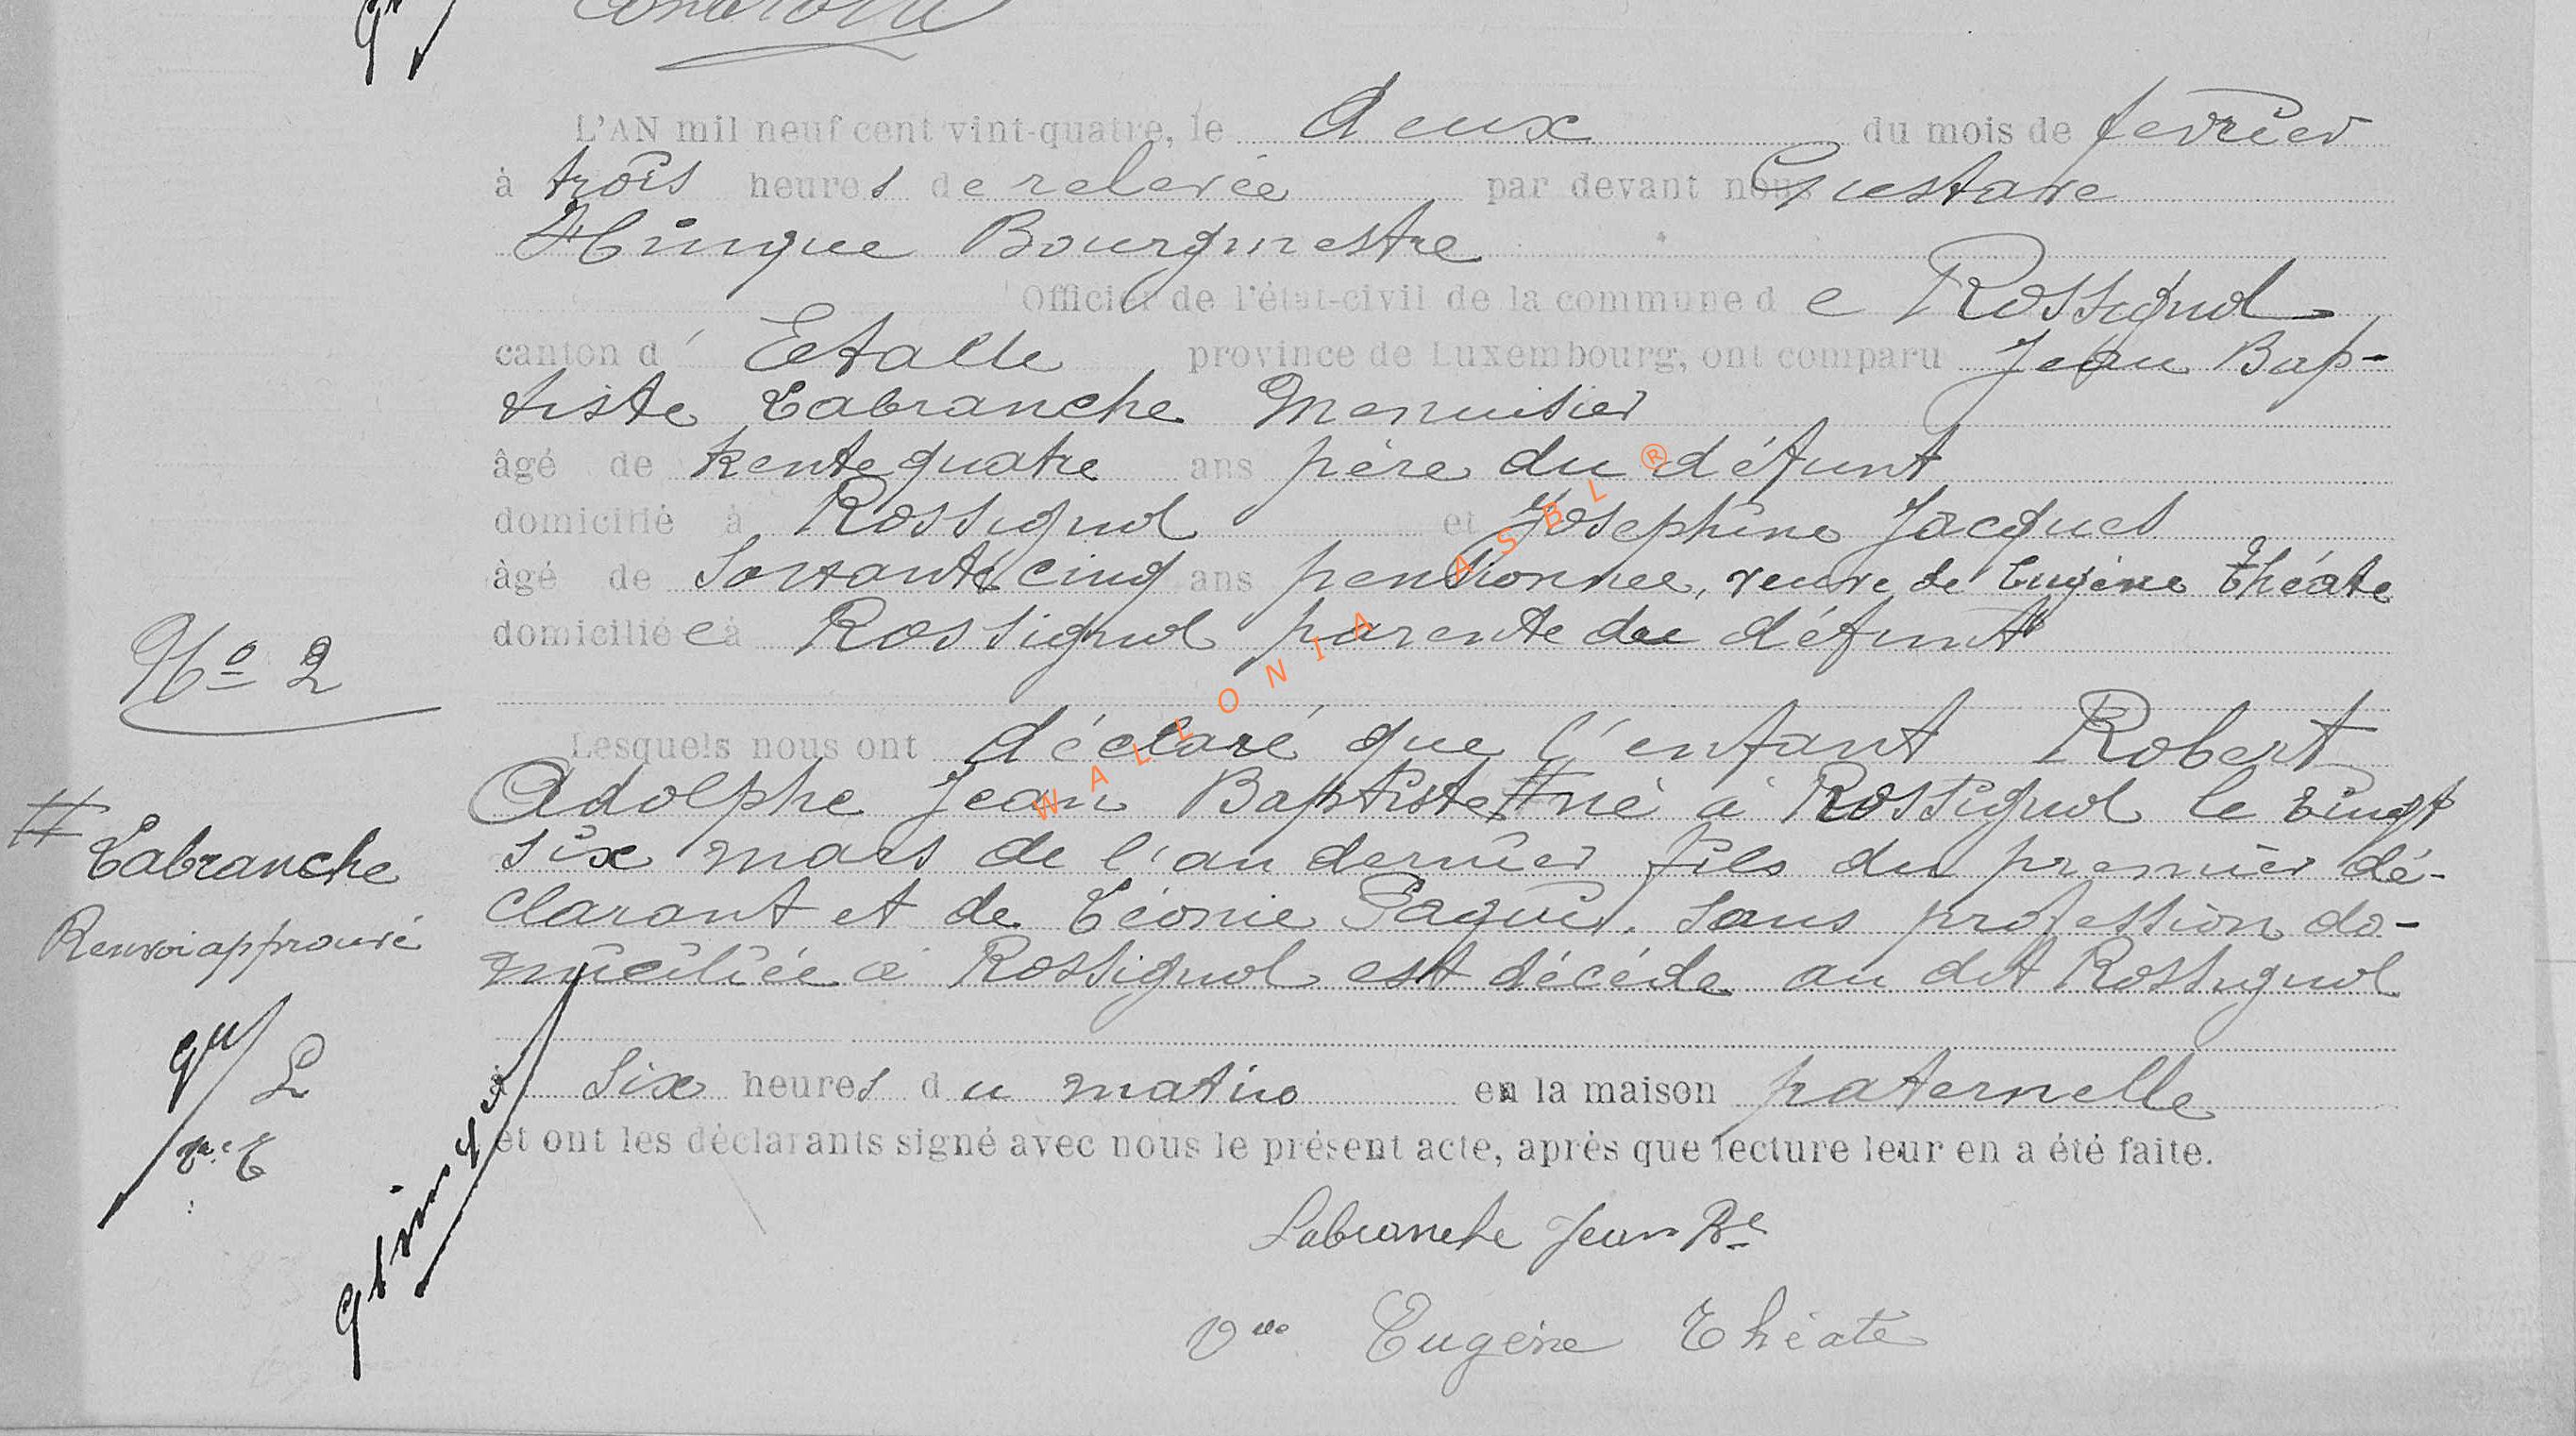 L'AN mil neuf cent vint-quatre, le deux du mois de fevrier
à trois heures de relevée par devant nous Gustave
Hinque Bourgmestre
Officier de l'état-civil de la commune de Rossignol
canton d'Etalle province de Luxembourg, ont comparu Jean Bap-
tiste Labranche Menuisier
âgé de trente quatre ans père du défunt
domicilié à Rossignol et Joséphine Jacques
âgé de Soixante cinq ans pensionnee, veuve de Eugène Théate
domiciliée à Rossignol parente du défunt
No 2
Lesquels nous ont déclaré que l'enfant Robert
Adolphe Jean Baptiste # né à Rossignol le vingt
six mars de l'an dernier fils du premier dé-
clarant et de Léonie Paquis. Sans profession do-
miciliée à Rossignol est décédé au dit Rossignol
# Labranche
Renvoi approuvé
L
Vve T
à six heures du matin en la maison paternelle
et ont les déclarants signé avec nous le présent acte, après que lecture leur en a été faite.
Labranche Jean Bte
Vve Eugène Théate
WALLONIA ASBL ®